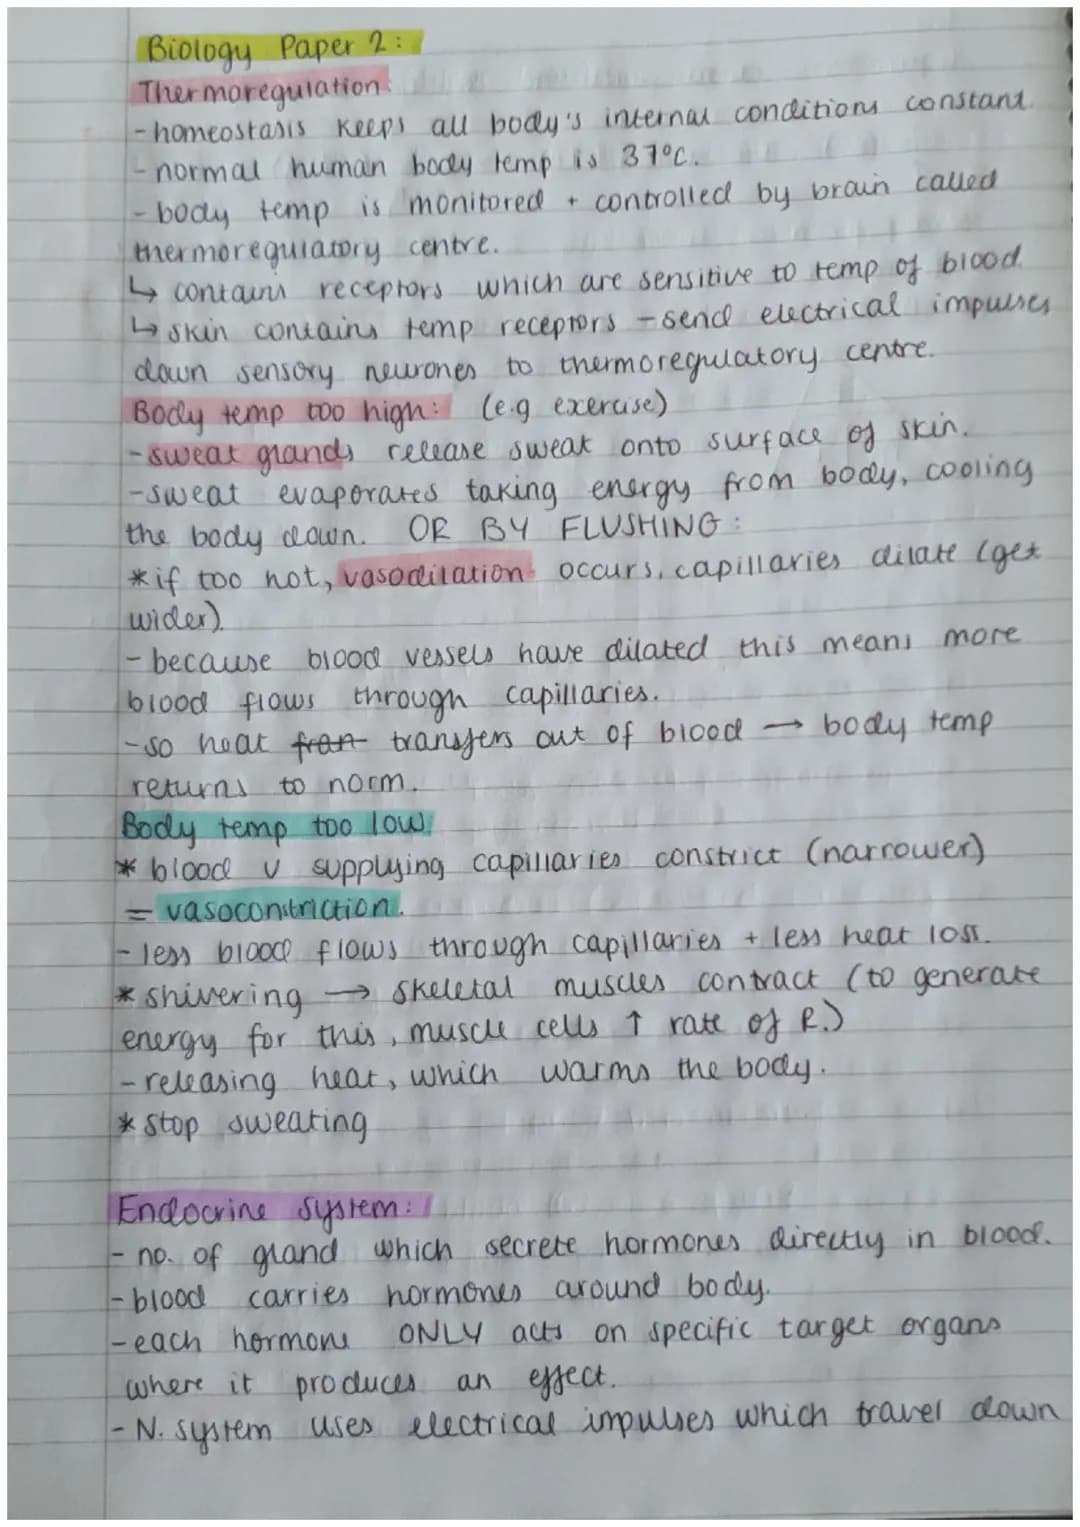 Biology Paper 2:
Thermoregulation:
- homeostasis keeps all body's internal conditions constant.
- normal human body temp is 37°C.
- body temp is monitored + controlled by brain called
thermoregulatory centre.
↳ contains receptors which are sensitive to temp of blood.
↳ skin contains temp receptors - send electrical impulses
down sensory neurones to thermoregulatory centre.
Body temp too high: (e.g exercise)
- sweat glands release sweat onto surface of skin.
- sweat evaporates taking energy from body, cooling
the body down. OR BY FLUSHING:
* if too hot, vasodilation occurs, capillaries dilate (get
wider).
- because blood vessels have dilated this means more
blood flows through capillaries.
- so heat from transfers out of blood → body temp
returns to norm.
Body temp too low:
* blood v supplying capillaries constrict (narrower)
= vasoconstriction.
- less blood flows through capillaries + less heat loss.
* shivering → skeletal muscles contract (to generate
energy for this, muscle cells ↑ rate of R.)
- releasing heat, which warms the body.
* stop sweating
Endocrine system:
- no. of gland which secrete hormones directly in blood.
- blood carries hormones around body.
- each hormone ONLY acts on specific target organs
where it produces an effect.
- N. system uses electrical impulses which travel down